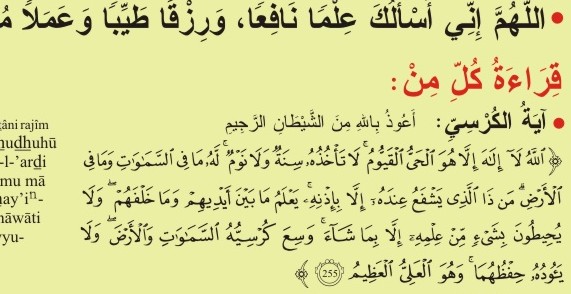 • اللَّهُمَّ إِنِّي أَسْأَلُكَ عِلْمًا نَافِعًا، وَرِزْقًا طَيِّبًا وَعَمَلاً
قِرَاءَةُ كُلِّ مِنْ:
• آيَةُ الكُرْسِيِّ: أَعُوذُ بِاللهِ مِنَ الشَّيْطَانِ الرَّجِيمِ
﴿ٱللَّهُ لَآ إِلَٰهَ إِلَّا هُوَ ٱلْحَىُّ ٱلْقَيُّومُ ۚ لَا تَأْخُذُهُۥ سِنَةٌ وَلَا نَوْمٌ ۚ لَّهُۥ مَا فِى ٱلسَّمَٰوَٰتِ وَمَا فِى
ٱلْأَرْضِ ۗ مَن ذَا ٱلَّذِى يَشْفَعُ عِندَهُۥٓ إِلَّا بِإِذْنِهِۦ ۚ يَعْلَمُ مَا بَيْنَ أَيْدِيهِمْ وَمَا خَلْفَهُمْ ۖ وَلَا
يُحِيطُونَ بِشَىْءٍ مِّنْ عِلْمِهِۦٓ إِلَّا بِمَا شَآءَ ۚ وَسِعَ كُرْسِيُّهُ ٱلسَّمَٰوَٰتِ وَٱلْأَرْضَ ۖ وَلَا
يَـُٔودُهُۥ حِفْظُهُمَا ۚ وَهُوَ ٱلْعَلِىُّ ٱلْعَظِيمُ 255﴾
tâni rajîm
nudhuhû
-l-'ardi
mu mâ
hay'iⁿ-
nâwâti
yyu-